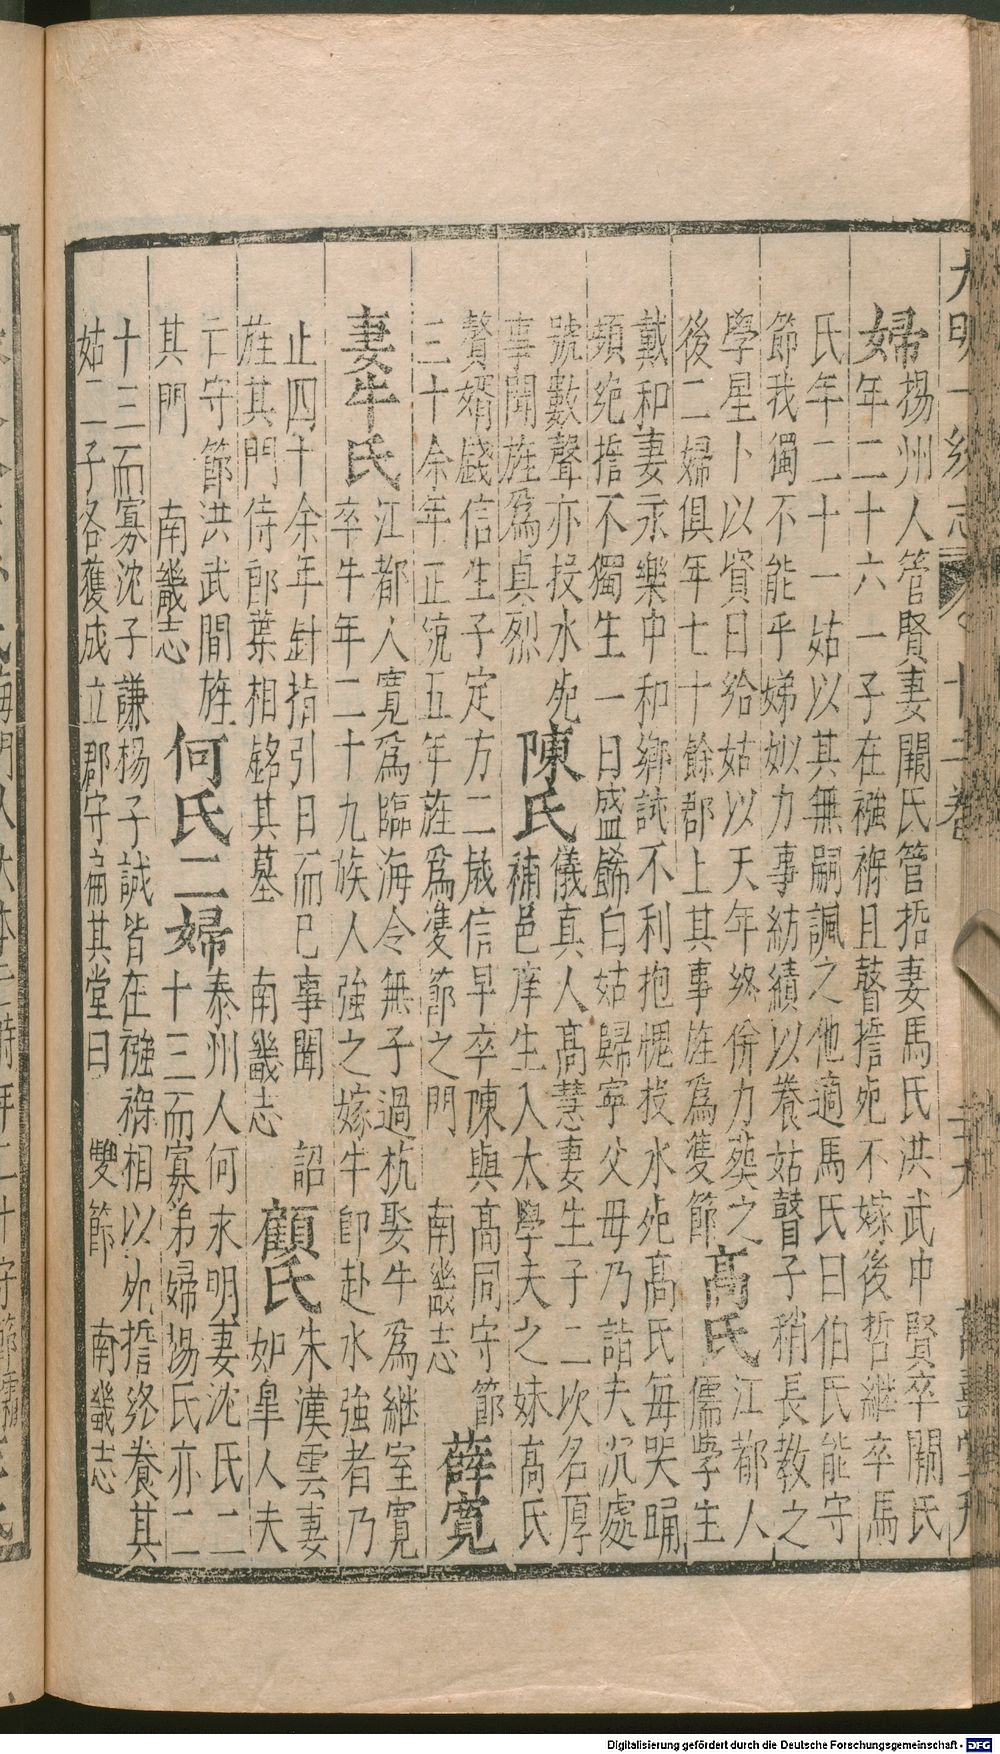 大明一統志 十二卷 三十九 萬壽堂刋
婦 楊州人管賢妻關氏管哲妻馬氏洪武中賢卒關氏
年二十六一子在襁褓且瞽誓死不嫁後哲繼卒馬
氏年二十一姑以其無嗣諷之他適馬氏曰伯氏能守
節我獨不能乎娣姒力事紡績以養姑瞽子稍長教之
學星卜以資日給姑以天年終併力葬之
後二婦俱年七十餘郡上其事旌爲雙節
高氏 江都人
儒學生
戴和妻永樂中和鄉試不利抱愧投水死高氏每哭踊
頻絶誓不獨生一日盛餙白姑歸寧父母乃詣夫沉處
號數聲亦投水死
事聞旌爲貞烈
陳氏 儀真人高慧妻生子二次名厚
補邑庠生入太學夫之妹高氏
贅婿戲信生子定方二歲信早卒陳與高同守節
三十余年正統五年旌爲雙節之門 南畿志
薛寬
妻牛氏 江都人寬爲臨海令無子過杭娶牛爲継室寬
卒牛年二十九族人強之嫁牛卽赴水強者乃
止四十余年針指引日而已事聞 詔
旌其門侍郎葉相銘其墓 南畿志
顧氏 朱漢雲妻
如皐人夫
亡守節洪武間旌
其門 南畿志
何氏二婦 泰州人何永明妻沈氏二
十三而寡弟婦楊氏亦二
十三而寡沈子謙楊子諴皆在襁褓相以死誓終養其
姑二子各獲成立郡守扁其堂曰 雙節 南畿志
Digitalisierung gefördert durch die Deutsche Forschungsgemeinschaft - DFG